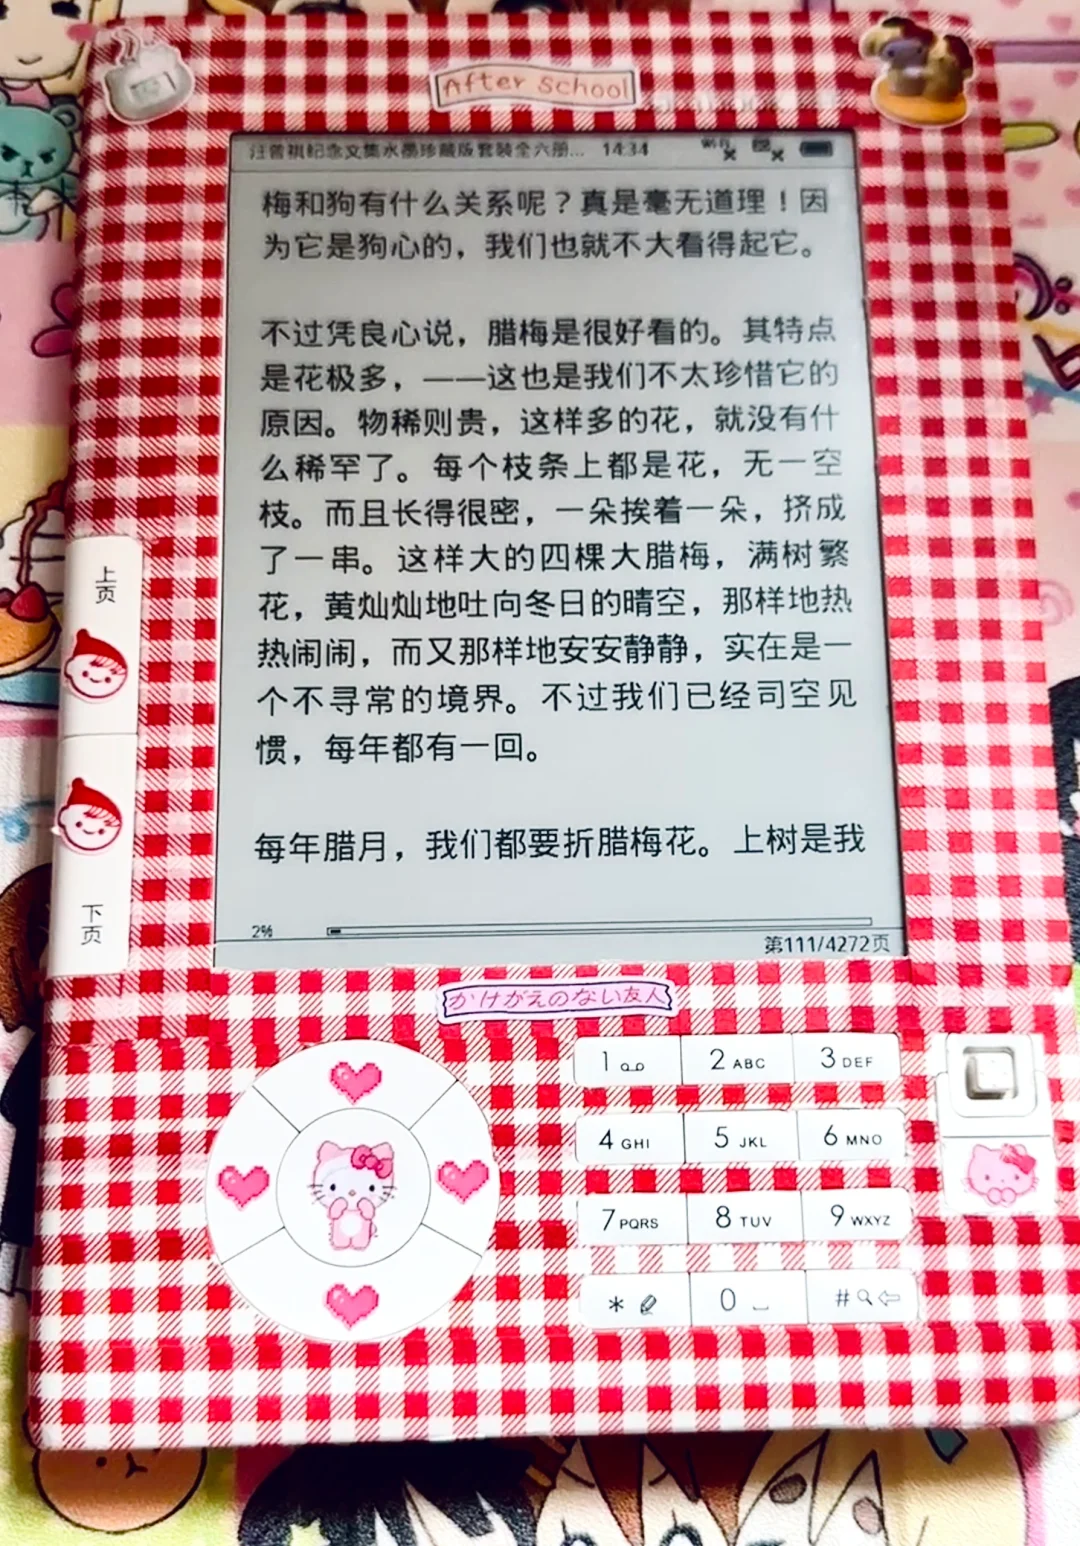 After School
汪曾祺纪念文集水墨珍藏版套装全六册... 14:34
梅和狗有什么关系呢？真是毫无道理！因
为它是狗心的，我们也就不大看得起它。
不过凭良心说，腊梅是很好看的。其特点
是花极多，——这也是我们不太珍惜它的
原因。物稀则贵，这样多的花，就没有什
么稀罕了。每个枝条上都是花，无一空
枝。而且长得很密，一朵挨着一朵，挤成
了一串。这样大的四棵大腊梅，满树繁
花，黄灿灿地吐向冬日的晴空，那样地热
热闹闹，而又那样地安安静静，实在是一
个不寻常的境界。不过我们已经司空见
惯，每年都有一回。
每年腊月，我们都要折腊梅花。上树是我
2%
第111/4272页
上页
下页
かけがえのない友人
1 2 ABC 3 DEF
4 GHI 5 JKL 6 MNO
7 PQRS 8 TUV 9 WXYZ
* 0 #